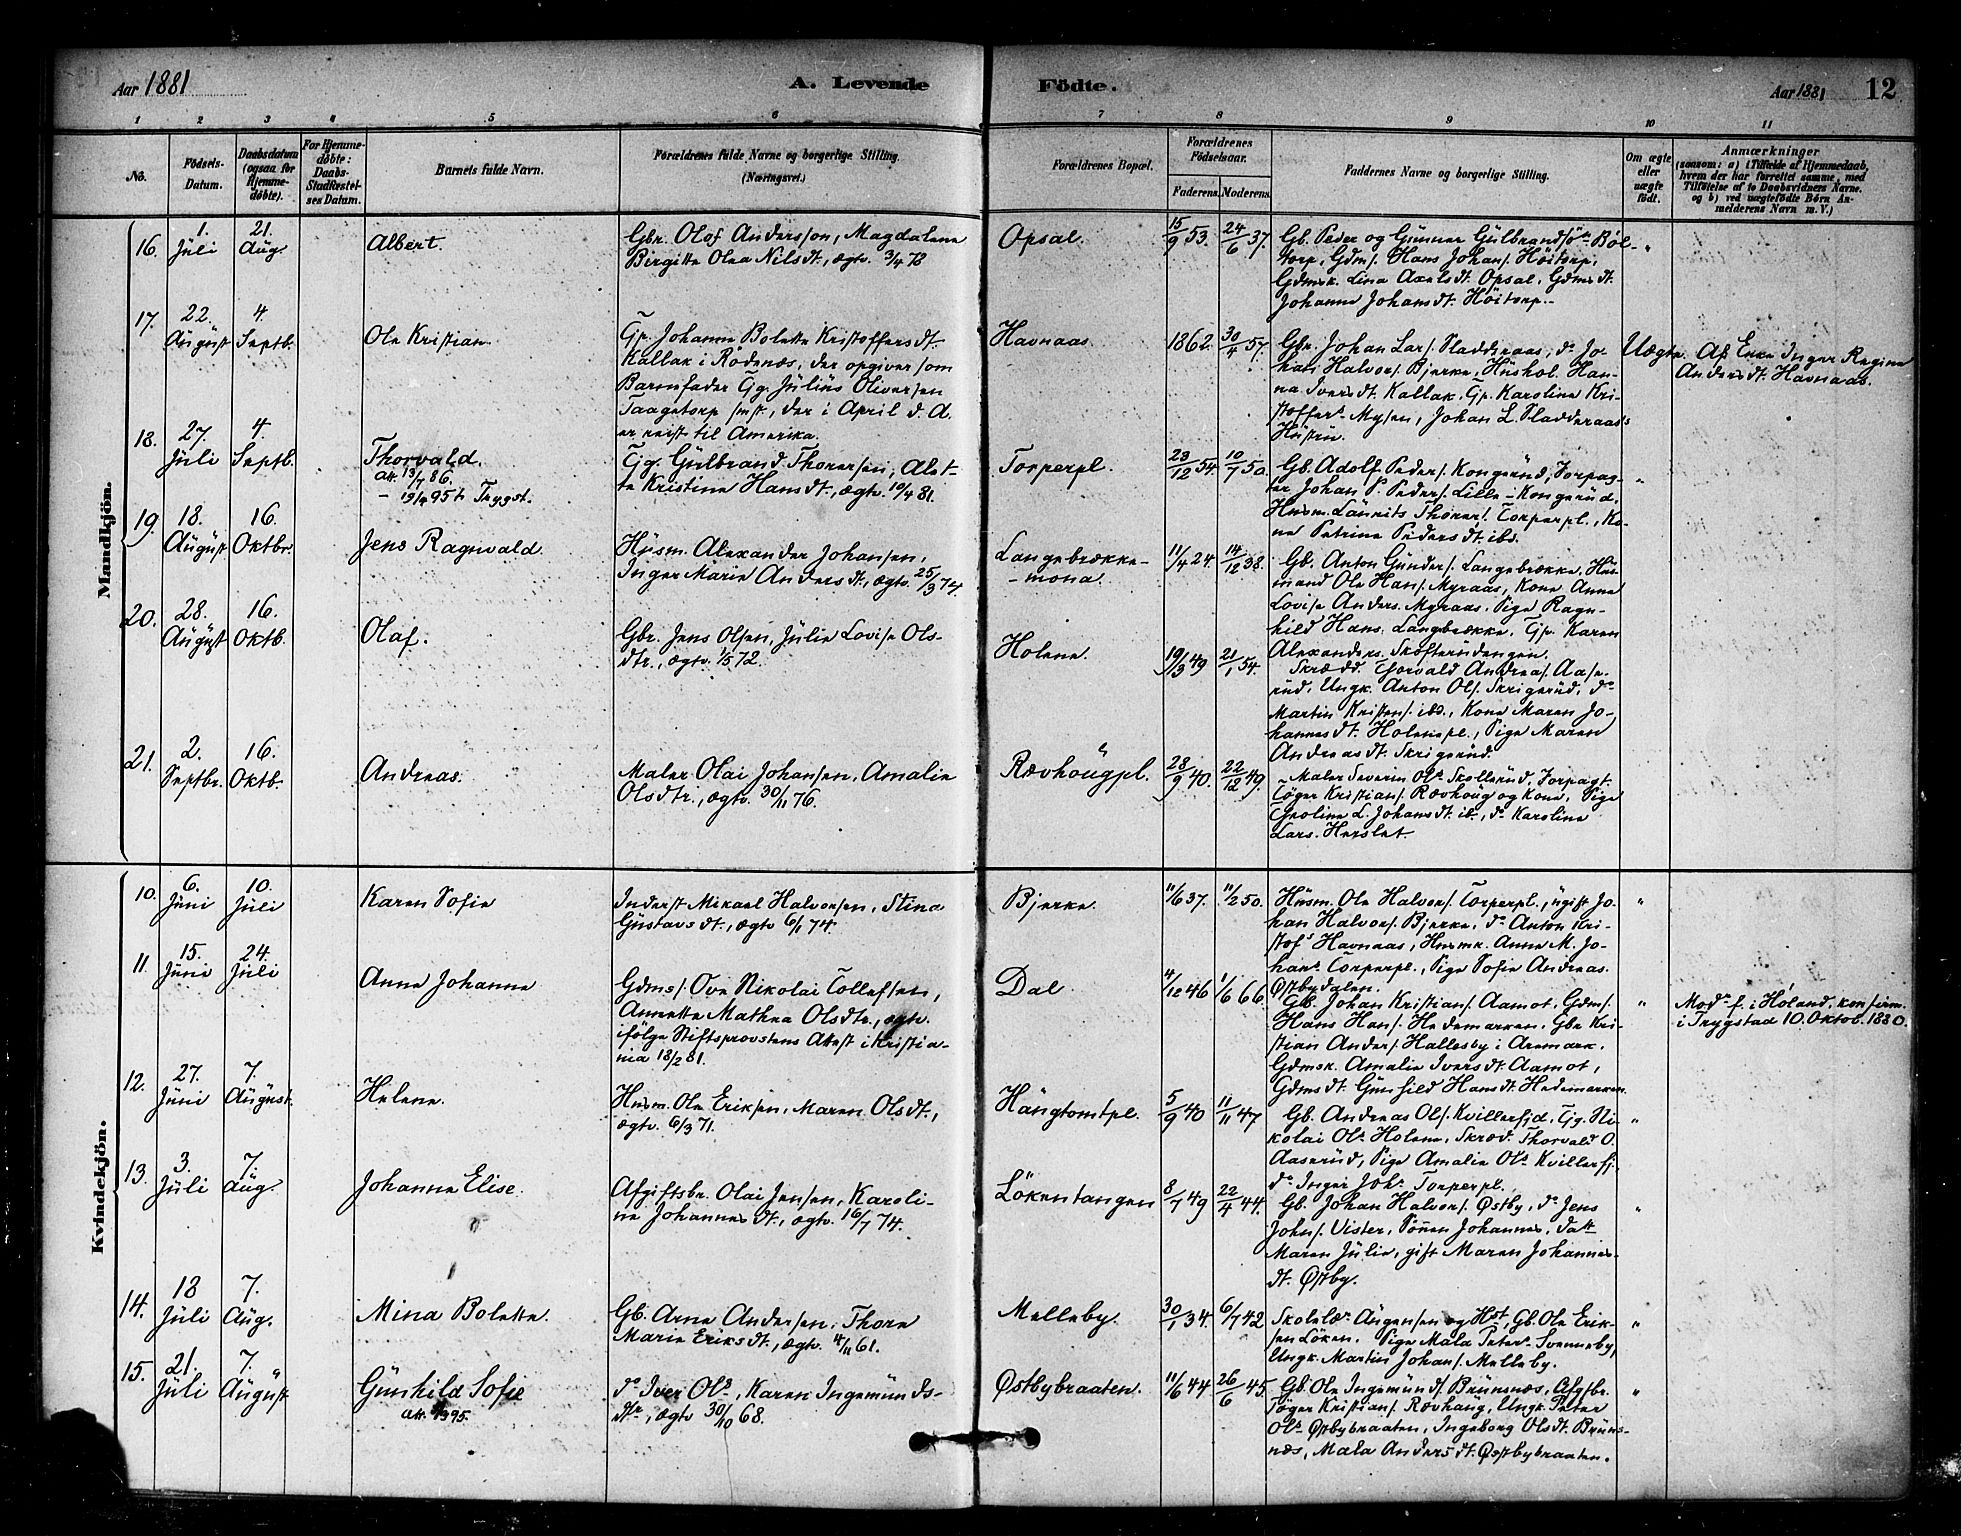 Aar 1881
A. Levende
Födte.
Aar 1881
12
1 2 3 4 5 6 7 8 9 10 11
No.
Födsels-
Datum.
Daabsdatum
(ogsaa for
Hjemme-
döbte).
For Hjemme-
döbte:
Daabs-
Stadfæstel-
ses Datum.
Barnets fulde Navn.
Forældrenes fulde Navne og borgerlige Stilling.
(Næringsvei.)
Forældrenes Bopæl.
Forældrenes
Födselsaar.
Faderens. Moderens.
Faddernes Navne og borgerlige Stilling.
Om ægte
eller
uægte
födt.
Anmærkninger
(saasom: a) i Tilfælde af Hjemmedaab,
hvem der har forrettet samme, med
Tilföielse af to Daabsvidners Navne.
og b) ved uægtefödte Börn An-
melderens Navn m. V.)
Mandkjön.
16.
1.
Juli
21.
Aug.
Albert.
Gbr. Olof Andersson, Magdalene
Birgitte Olea Nilsdt., ægtv. 3/4 78
Opsal.
15/9 53.
24/6 37.
Gb. Peder og Gunnar Gulbrandsön Böl-
torp, Gdms. Hans Johans. Höitorp,
Gdmsk. Lina Axelsdt. Opsal, Gdmsdt.
Johanne Johansdt. Höitorp.
"
17.
22.
August
4.
Septb.
Ole Kristian.
Gp. Johanne Bolette Kristoffersdt.
Kallak i Rödenæs, der opgiver som
Barnefader Gg. Julius Oliversen
Taagetorp smst., der i April d. A.
er reist til Amerika.
Havnaas.
1862.
30/4 57.
Gbr. Johan Lars. Sladderaas, do Jo-
han Halvors. Bjerke, Hushol. Han-
na Iversdt. Kallak. Gp. Karoline Kri-
stoffers. Mysen, Johan L. Sladderaas's
Hustru.
Uægte.
Af Enke Inger Regine
Andersdt. Havnaas.
18.
27.
Juli
4.
Septb.
Thorvald.
Att. 13/7 86.
Trygst.
Gg. Gulbrand Thoresen, Alet-
te Kristine Hansdt., ægtv. 10/4 81.
Torperpl.
23/12 54.
10/7 50.
Gb. Adolf Peders. Kongerud, Forpag-
ter Johan P. Peders. Lille-Kongerud,
Husm. Laurits Thores. Torperpl., Ko-
ne Petrine Pedersdt. ibd.
"
19.
18.
August
16.
Oktbr.
Jens Ragnvald.
Husm. Alexander Johansen,
Inger Marie Andersdt., ægtv. 25/3 74.
Langebrække-
-mona.
11/4 24.
14/12 38.
Gb. Anton Gunders. Langebrække, Hus-
mand Ole Hans. Myraas, Kone Anne
Lovise Anders. Myraas, Pige Ragn-
hild Hans. Langbrække, Gp. Karen
Alexanders. Skofterudengen.
20.
28.
August
16.
Oktb.
Olaf.
Gbr. Jens Olsen, Julie Lovise Ols-
dtr., ægtv. 1/5 72.
Holene.
19/3 49
21/1 54.
Skrædd. Thorvald Andreas. Aase-
rud, Ungk. Anton Ols. Skrigerud, do
Martin Kristens. ibd., Kone Maren Jo-
hannesdt. Holenepl., Pige Maren
Andreasdt. Skrigerud.
21.
2.
Septbr.
16.
Oktb.
Andreas.
Maler Olai Johansen, Amalie
Olsdtr., ægtv. 30/11 76.
Rævhougpl.
28/9 40.
22/12 49.
Maler Severin Ols. Skollerud, Forpagt.
Töger Kristians. Rævhoug og Kone, Pige
Groline L. Johansdt. ib., do Karoline
Lars. Herslet.
Kvindekjön.
10.
6.
Juni
10.
Juli
Karen Sofie
Inderst Mikael Halvorsen, Stina
Gustavsdt., ægtv 6/1 74.
Bjerke.
11/6 37.
11/2 50.
Husm. Ole Halvors. Torperpl., ugift Jo-
han Halvors. Bjerke, do Anton Kri-
stofs Havnaas, Husmk. Anne M. Jo-
hans. Torperpl., Pige Sofie Andreas.
Østbydalen.
"
11.
15.
Juni
24.
Juli
Anne Johanne
Gdms. Ove Nikolai Tollefsen,
Annette Mathea Olsdtr., ægtv.
ifölge Stiftsprovstens Attest i Kristia-
nia 18/2 81.
Dal
4/12 46
1/6 66.
Gb. Johan Kristians. Aamot, Gdms.
Hans Hans. Hedemarken, Gbr Kri-
stian Anders. Hallesby i Aremark,
Gdmsk. Amalie Iversdt. Aamot,
Gdmsdt. Gunhild Hansdt. Hedemarken.
"
Modr f. i Höland, konfirm.
i Trygstad 10. Oktob. 1880.
12.
27.
Juni
7.
August.
Helene.
Husm. Ole Eriksen, Maren Olsdt.,
ægtv. 6/3 71.
Haugtomtpl.
5/9 40
11/11 47
Gb. Andreas Ols. Kvillersjd, Gg. Ni-
kolai Ols. Holene, Skræd. Thorvald O.
Aaserud, Pige Amalie Ols. Kvillersj.
do Inger Johs. Torperpl.
"
13.
3.
Juli
7.
Aug.
Johanne Elise.
Afgiftsbr. Olai Jensen, Karoli-
ne Johannesdt., ægtv. 16/7 74.
Lökentangen
8/7 49
22/4 44.
Gb. Johan Halvors. Østby, do Jens
Johs. Vister, Sönen Johannes, datt
Maren Julie, gift Maren Johannes-
dt. Østby.
"
14.
18
Juli
7.
Aug.
Mina Bolette.
Gb. Arne Andersen, Thore
Marie Eriksdt., ægtv. 4/11 61.
Melleby.
30/1 34.
6/7 42
Skolelær. Augensen og Hst, Gb. Ole Erik-
sen Löken. Pige Mala Peters. Svenneby,
Ungk. Martin Johans. Melleby.
"
15.
21.
Juli
7.
August
Gunhild Sofie
do Iver Ols., Karen Ingemunds-
dtr., ægtv 30/10 68.
Østbybraaten.
11/6 44
26/6 45.
Gb. Ole Ingemunds. Brunsnæs, Afgtbr.
Töger Kristians. Rævhaug, Ungk. Peter
Ols. Østbybraaten, Ingeborg Olsdt. Bruns-
næs, Mala Andersdt. Østbybraaten.
"